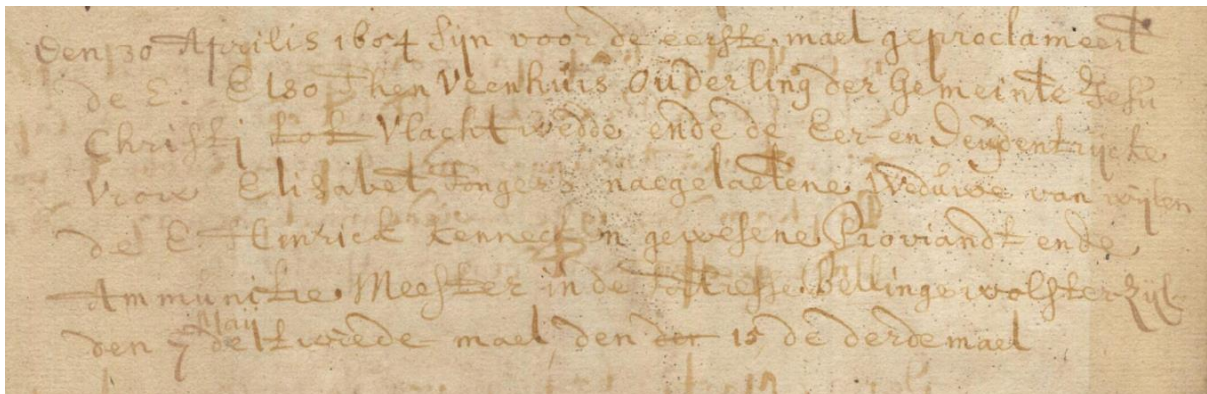 Den 30 Aprilis 1654 sijn voor de eerste mael geproclameert
de E. Elso Then Veenhuis Ouderling der Gemeinte Jesu
Christi tot Vlachtwedde ende de Eer en Deugdentrijcke
Vrow Elisabet Fongers naegelaetene Weduwe van wijlen
de E. Hinrick gewesene Proviandt ende
Ammunitie Meester in de Fortresse bellingwolster Zijl
den 7 Maij de twede mael den 15 de derde mael